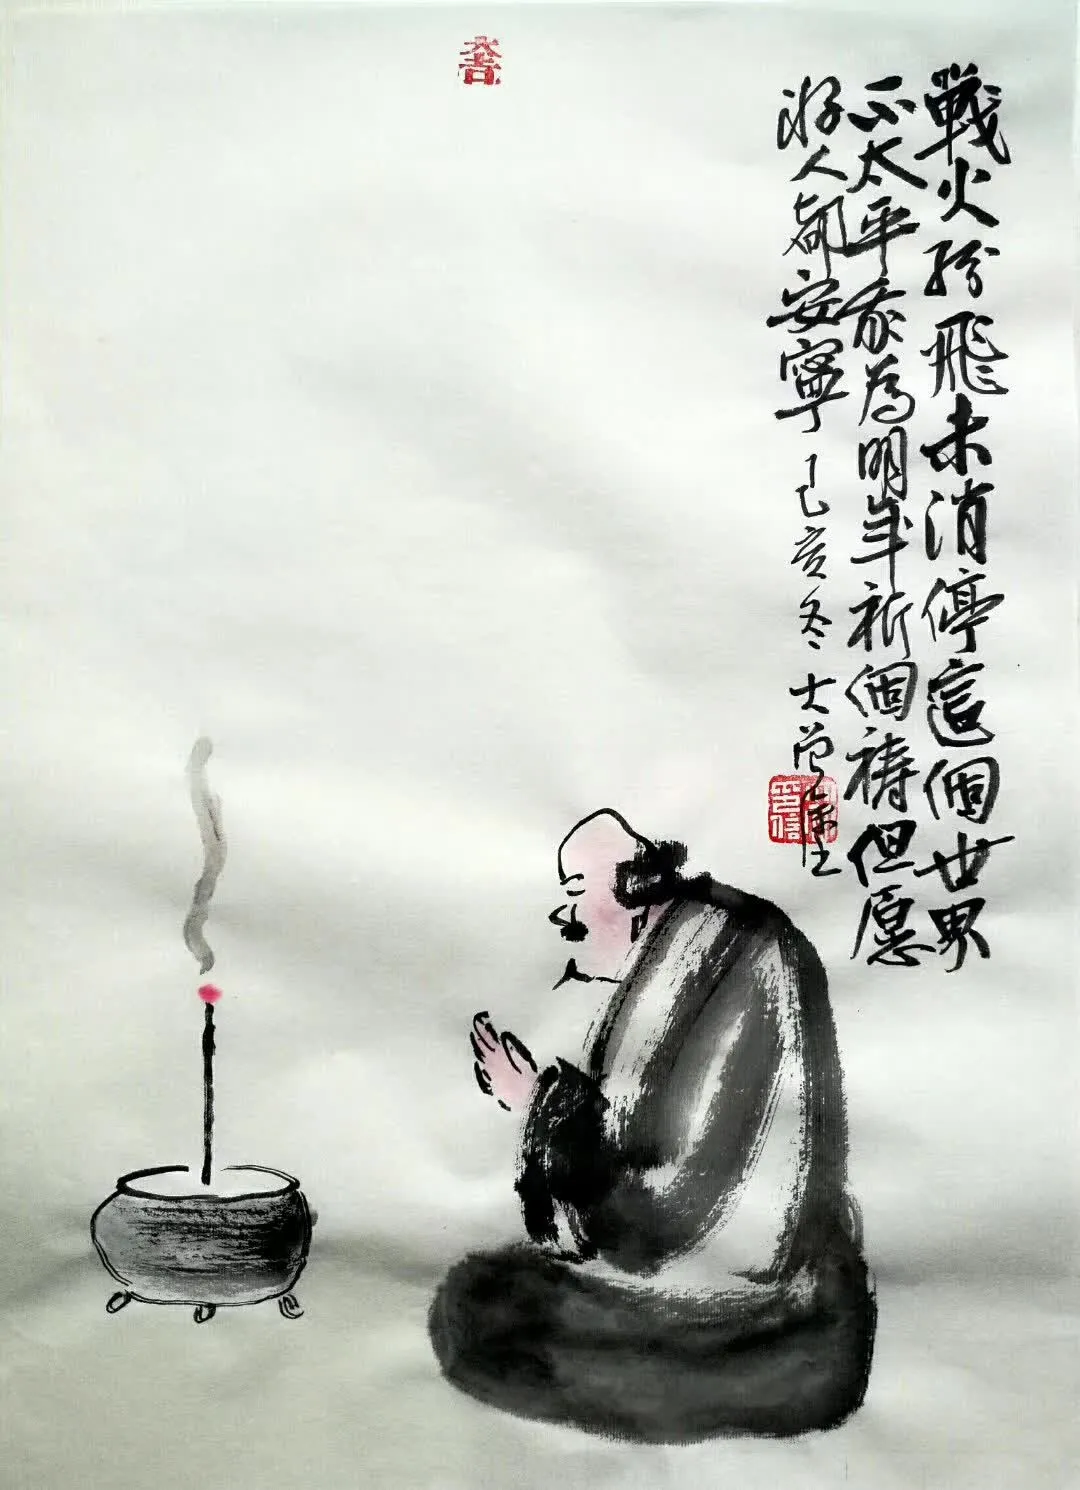 大吉
戰火紛飛未消停這個世界
不太平我為明年祈個禱但愿
好人都安寧 己亥冬 大曾